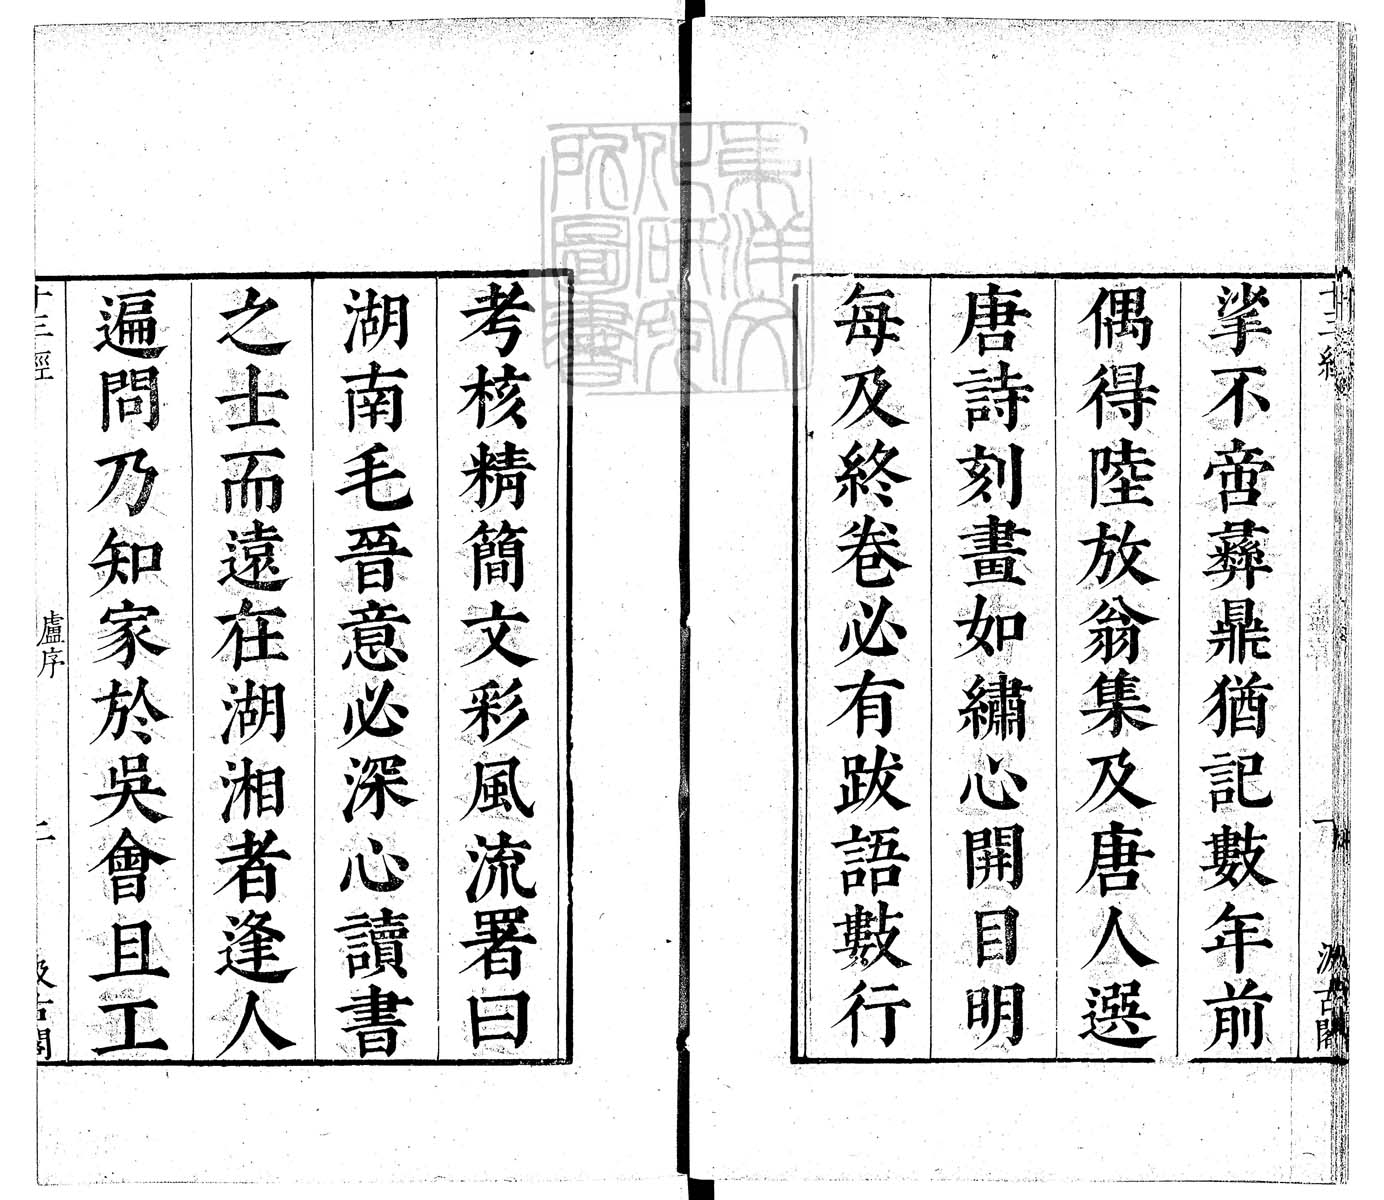 挲不啻彝鼎猶記數年前
偶得陸放翁集及唐人選
唐詩刻畫如繡心開目明
每及終卷必有跋語數行
考核精簡文彩風流署曰
湖南毛晉意必深心讀書
之士而遠在湖湘者逢人
遍問乃知家於吳會且工
十三經
盧序
二
汲古閣
東洋文
化研究
所圖書